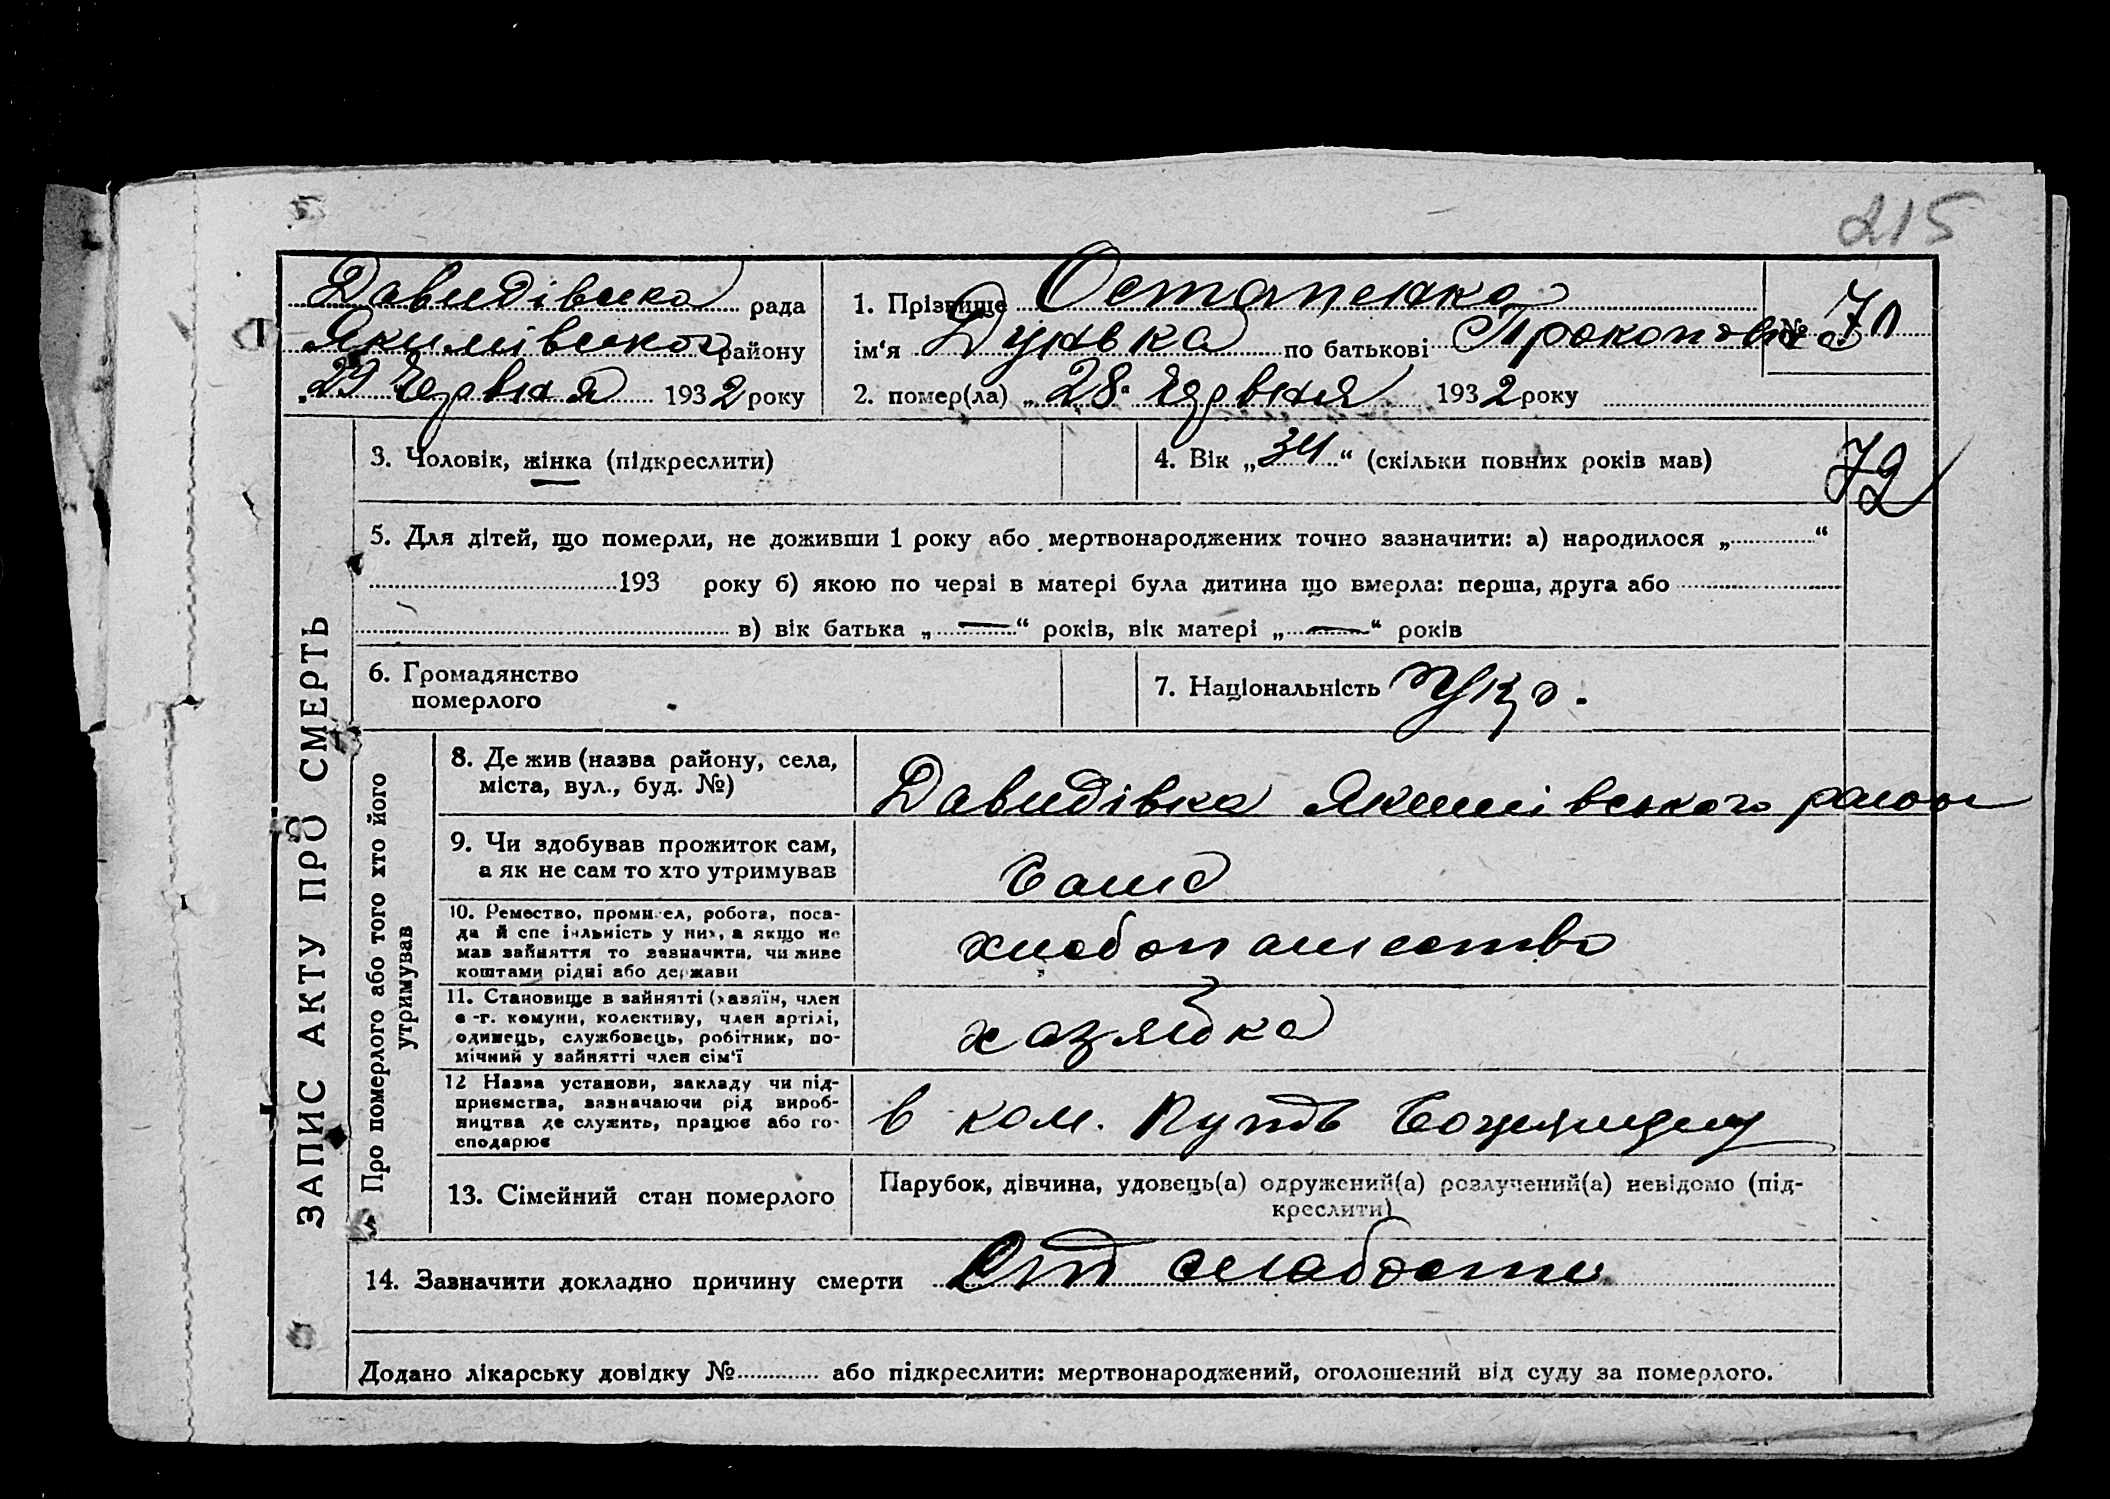 215
Давидівська рада
Якимівського району
„29 Червня 1932 року
1. Прізвище Остапенко
ім‘я Дунька по батькові Прокоповна
2. помер(ла) „28“ Червня 1932 року
№ 70
ЗАПИС АКТУ ПРО СМЕРТЬ
3. Чоловік, жінка (підкреслити)
4. Вік „34“ (скільки повних років мав)
72
5. Для дітей, що померли, не доживши 1 року або мертвонароджених точно зазначити: а) народилося „ “
193 року б) якою по черзі в матері була дитина що вмерла: перша, друга або
в) вік батька „—“ років, вік матері „—“ років
6. Громадянство
померлого
7. Національність Укр.
Про померлого або того хто його
утримував
8. Де жив (назва району, села,
міста, вул., буд. №)
Давидівка Якимівського район
9. Чи здобував прожиток сам,
а як не сам то хто утримував
Сама
10. Ремество, промисел, робота, поса-
да й спеціяльність у них, а якщо не
мав зайняття то зазначити, чи живе
коштами рідні або держави
хлебопашество
11. Становище в зайнятті (хазяїн, член
с.-г. комуни, колективу, член артілі,
одинець, службовець, робітник, по-
мічний у зайнятті член сім‘ї
хазяйка
12 Назва установи, закладу чи під-
приємства, зазначаючи рід вироб-
ництва де служить, працює або го-
сподарює
в ком. Путь
13. Сімейний стан померлого
Парубок, дівчина, удовець(а) одружений(а) розлучений(а) невідомо (під-
креслити)
14. Зазначити докладно причину смерти От слабости
Додано лікарську довідку № або підкреслити: мертвонароджений, оголошений від суду за померлого.